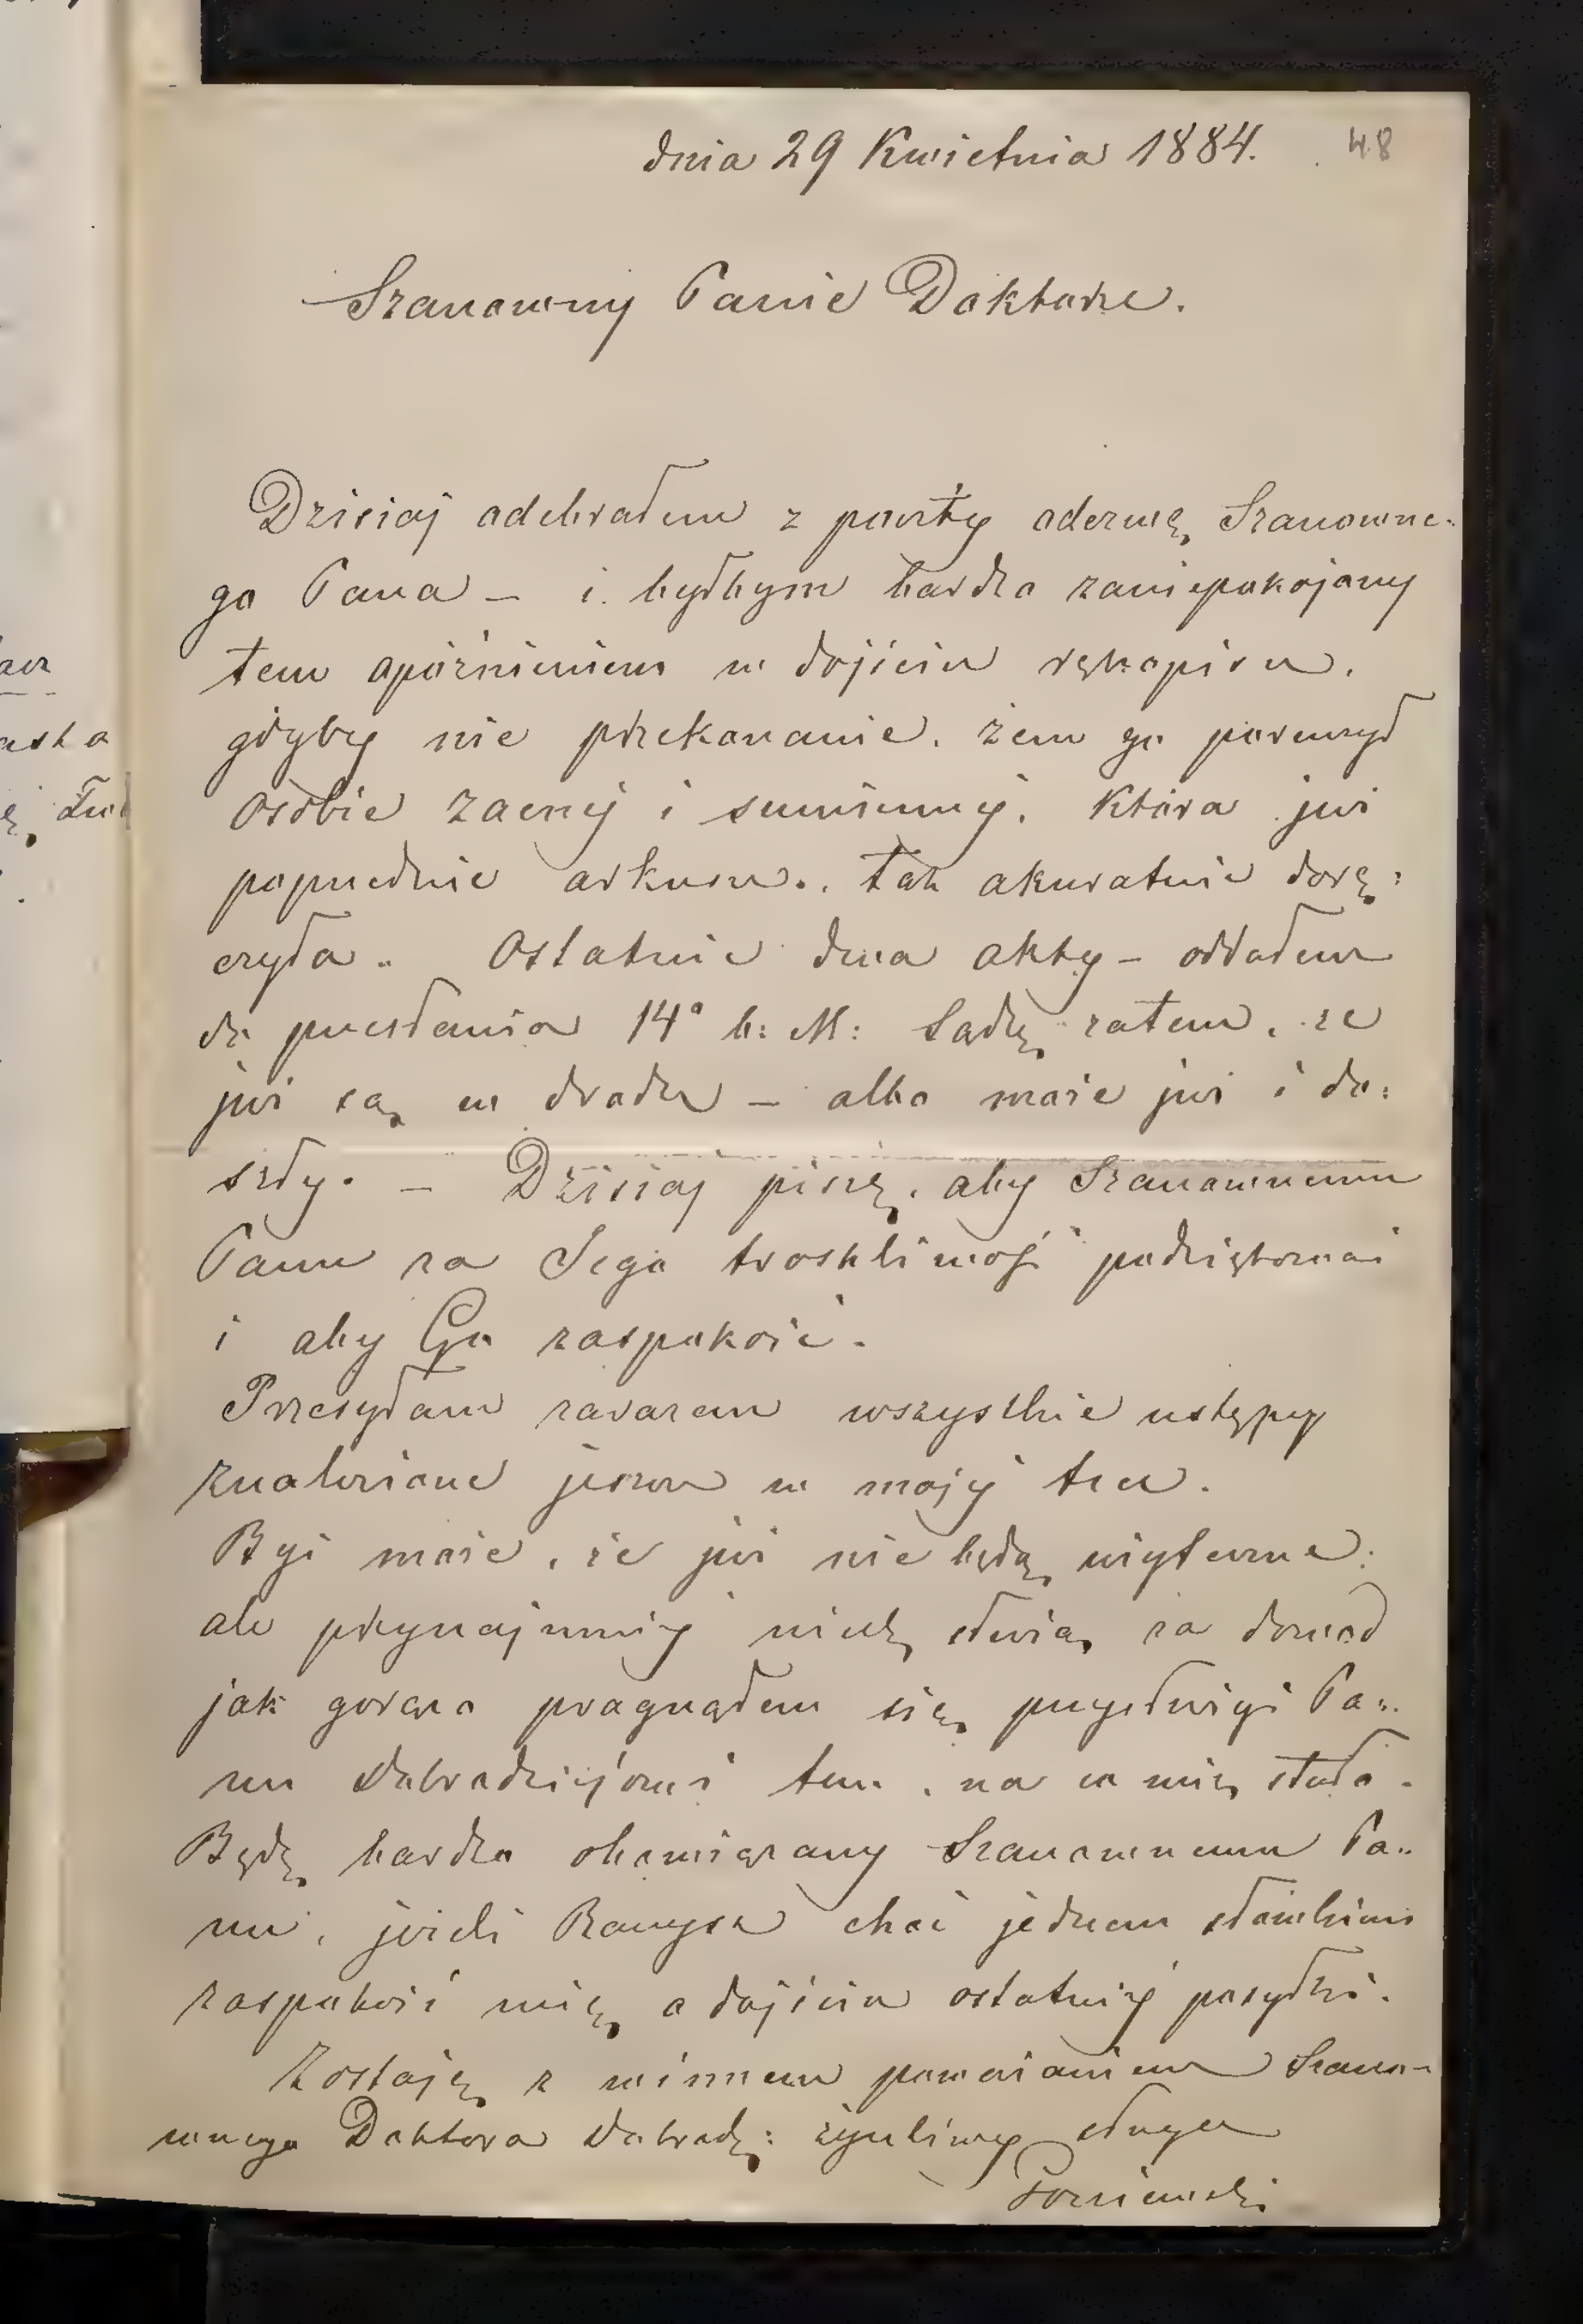 dnia 29 Kwietnia 1884. 48
Szanowny Panie Doktorze.
Dzisiaj odebrałem z poczty odezwę Szanowne-
go Pana – i byłbym bardzo zaniepokojony
tem opóźnieniem w dojściu rękopisu,
gdyby nie przekonanie, żem go powierzył
osobie zacnéj i sumiennéj, która już
poprzednie arkusze, tak akuratnie dorę:
czyła. Ostatnie dwa akty – oddałem
do przesłania 14º b: M: Sądzę zatem, że
już są w drodze – albo może już i do:
szły. – Dzisiaj piszę, aby Szanownemu
Panu za Jego troskliwość podziękować
i aby Go zaspokoić.
Przesyłam zarazem wszystkie ustępy
znalezione jeszcze w mojéj tece.
Być może, że już nie będą użyteczne:
ale przynajmniéj niech służą za dowód
jak gorąco pragnąłem się przysłużyć Pa:
nu Dobrodziejowi tem, na co mię stało.
Będę bardzo obowiązany Szanownemu Pa:
nu, jeżeli Raczysz choć jednem słówkiem
zaspokoić mię o dojściu ostatniéj posyłki.
Zostaję z winnem poważaniem Szano-
wnego Doktora Dobrodz: życzliwy sługa